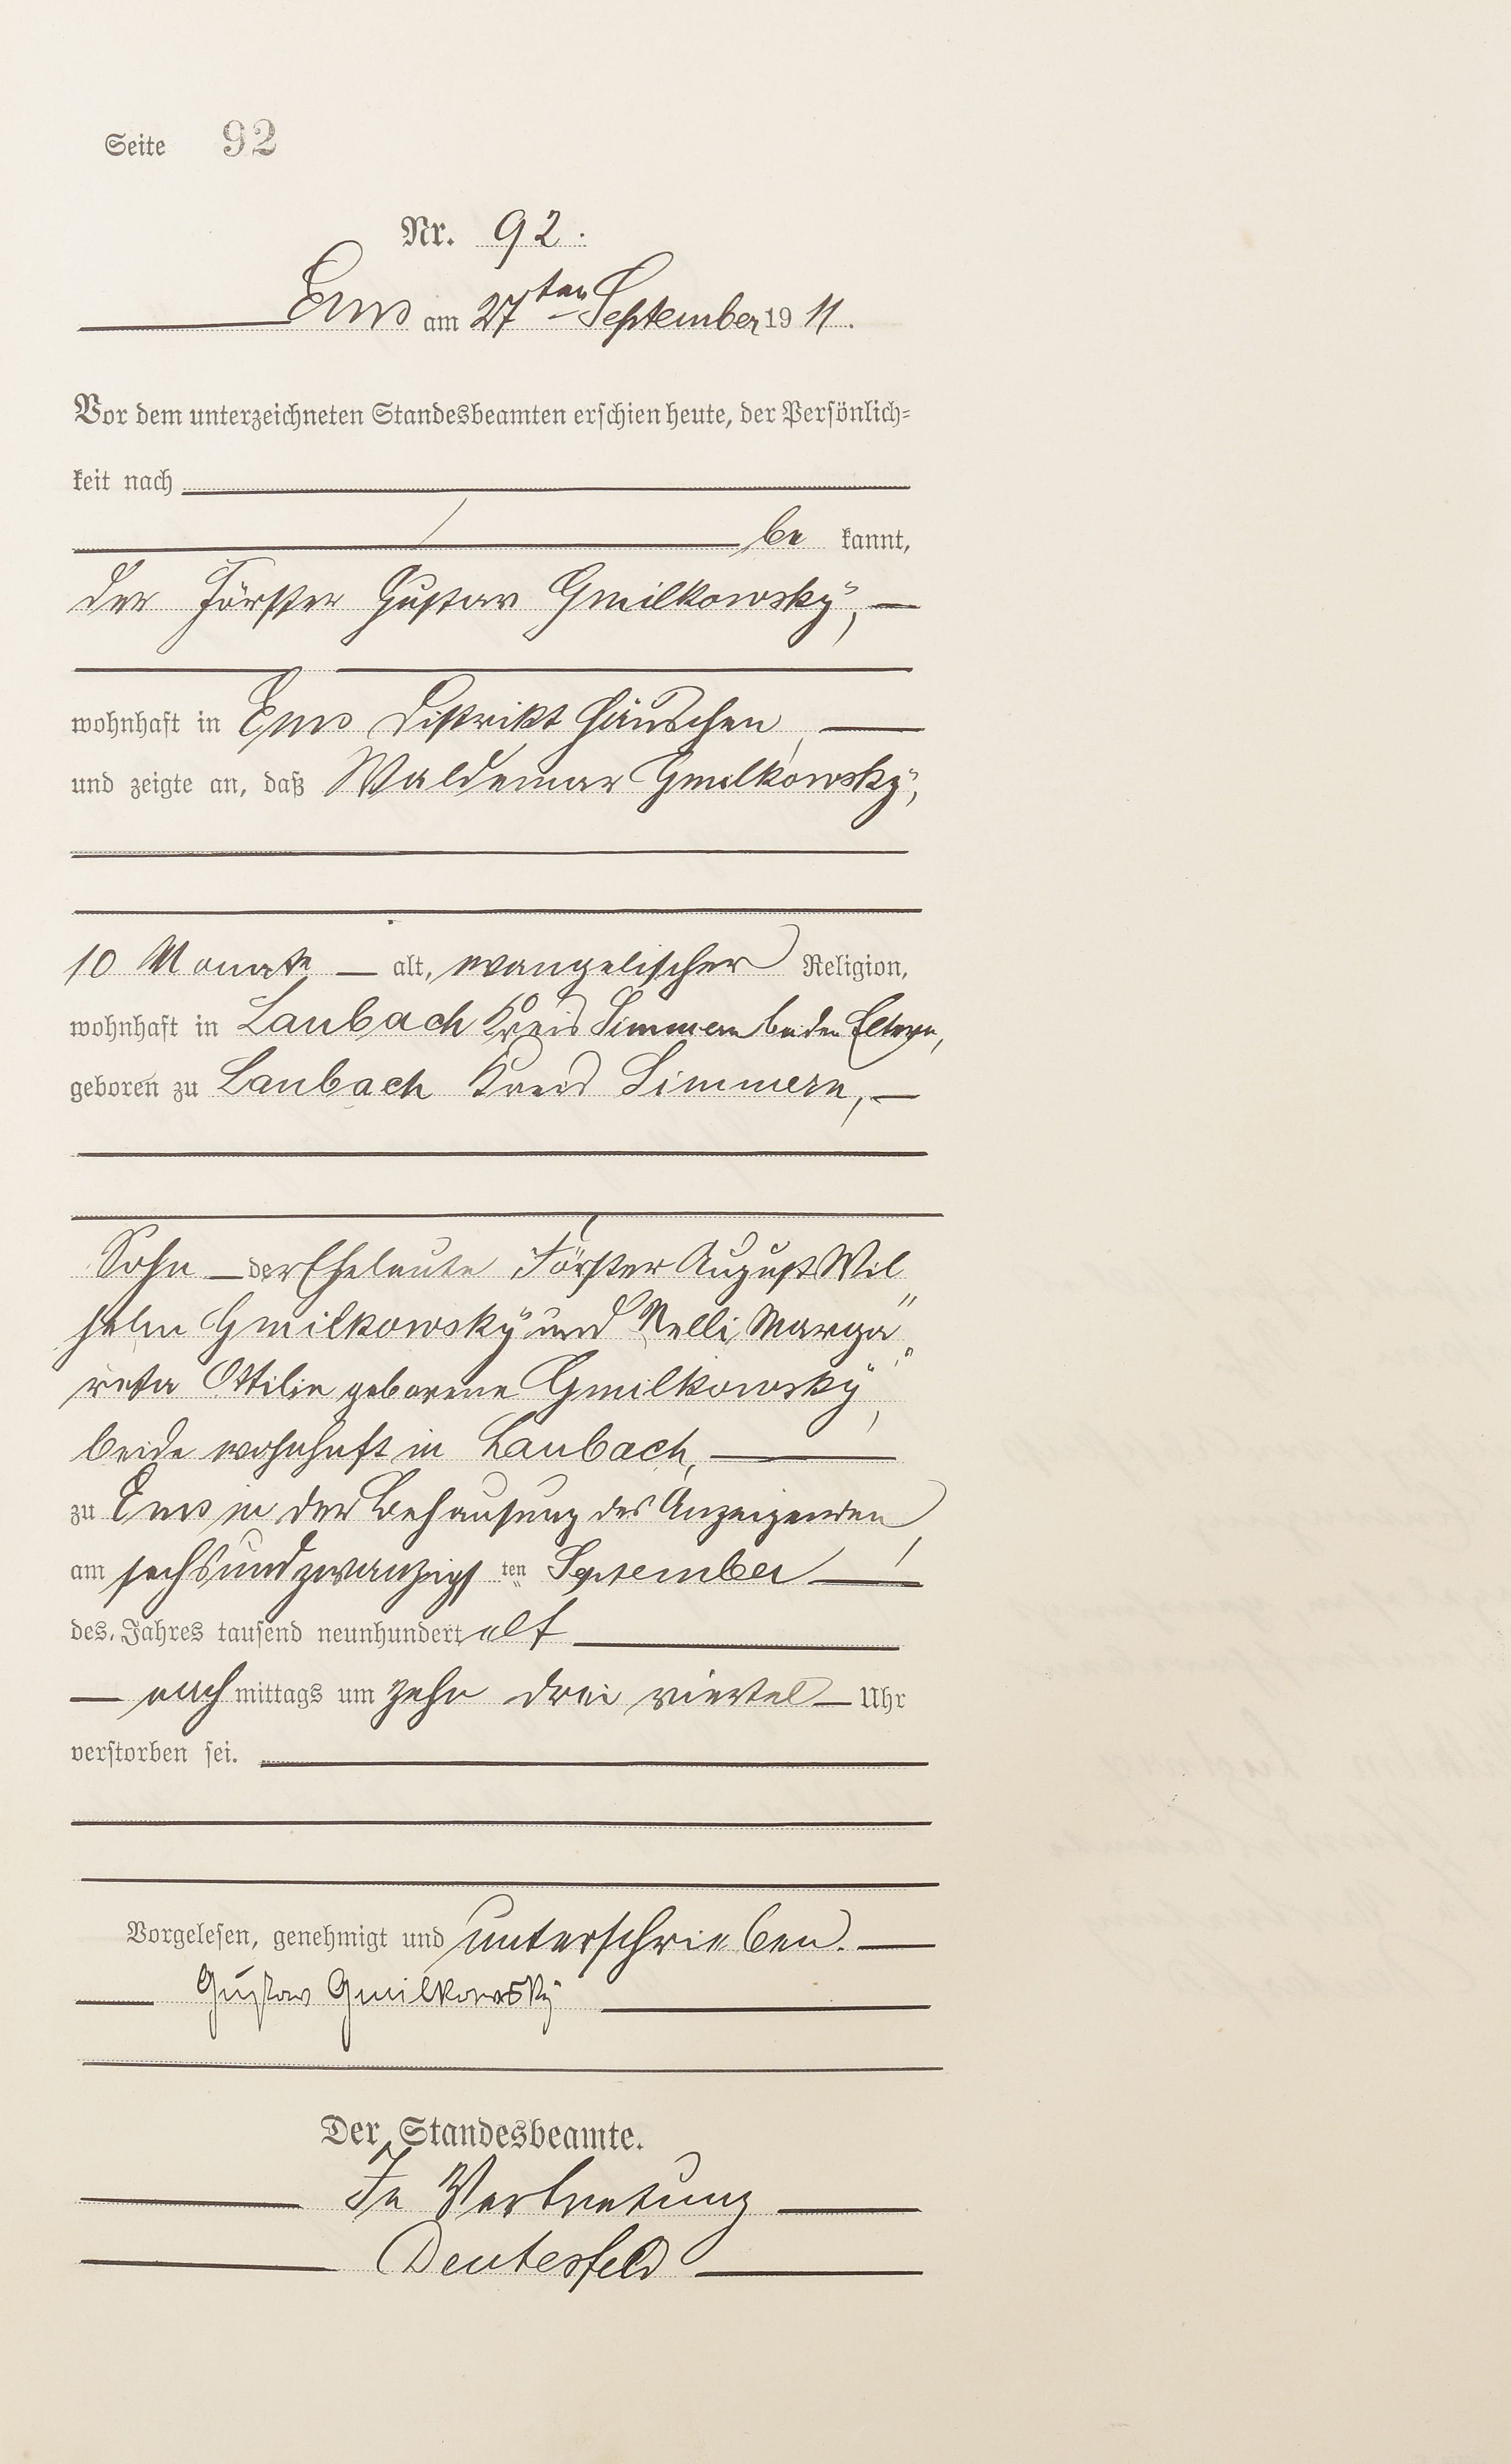 Seite 92
Nr. 92.
Ems am 27ten September 1911.
Vor dem unterzeichneten Standesbeamten erschien heute, der Persönlich=
keit nach
be kannt,
der Förster Gustav Gmilkowsky,
wohnhaft in Ems Distrikt Häuschen,
und zeigte an, daß Waldemar Gmilkowsky,
10 Monate alt, evangelischer Religion,
wohnhaft in Laubach Kreis Simmern bei den Eltern,
geboren zu Laubach Kreis Simmern,
Sohn der Eheleute Förster August Wil
helm Gmilkowsky und Nelli Marga"
reta Ottilie geborene Gmilkowsky,
beide wohnhaft in Laubach,
zu Ems in der Behausung des Anzeigenden
am sechsundzwanzigsten September
des Jahres tausend neunhundert elf
nach mittags um zehn drei viertel Uhr
verstorben sei.
Vorgelesen, genehmigt und unterschrieben.
Gustav Gmilkowsky
Der Standesbeamte.
In Vertretung
Deutesfeld